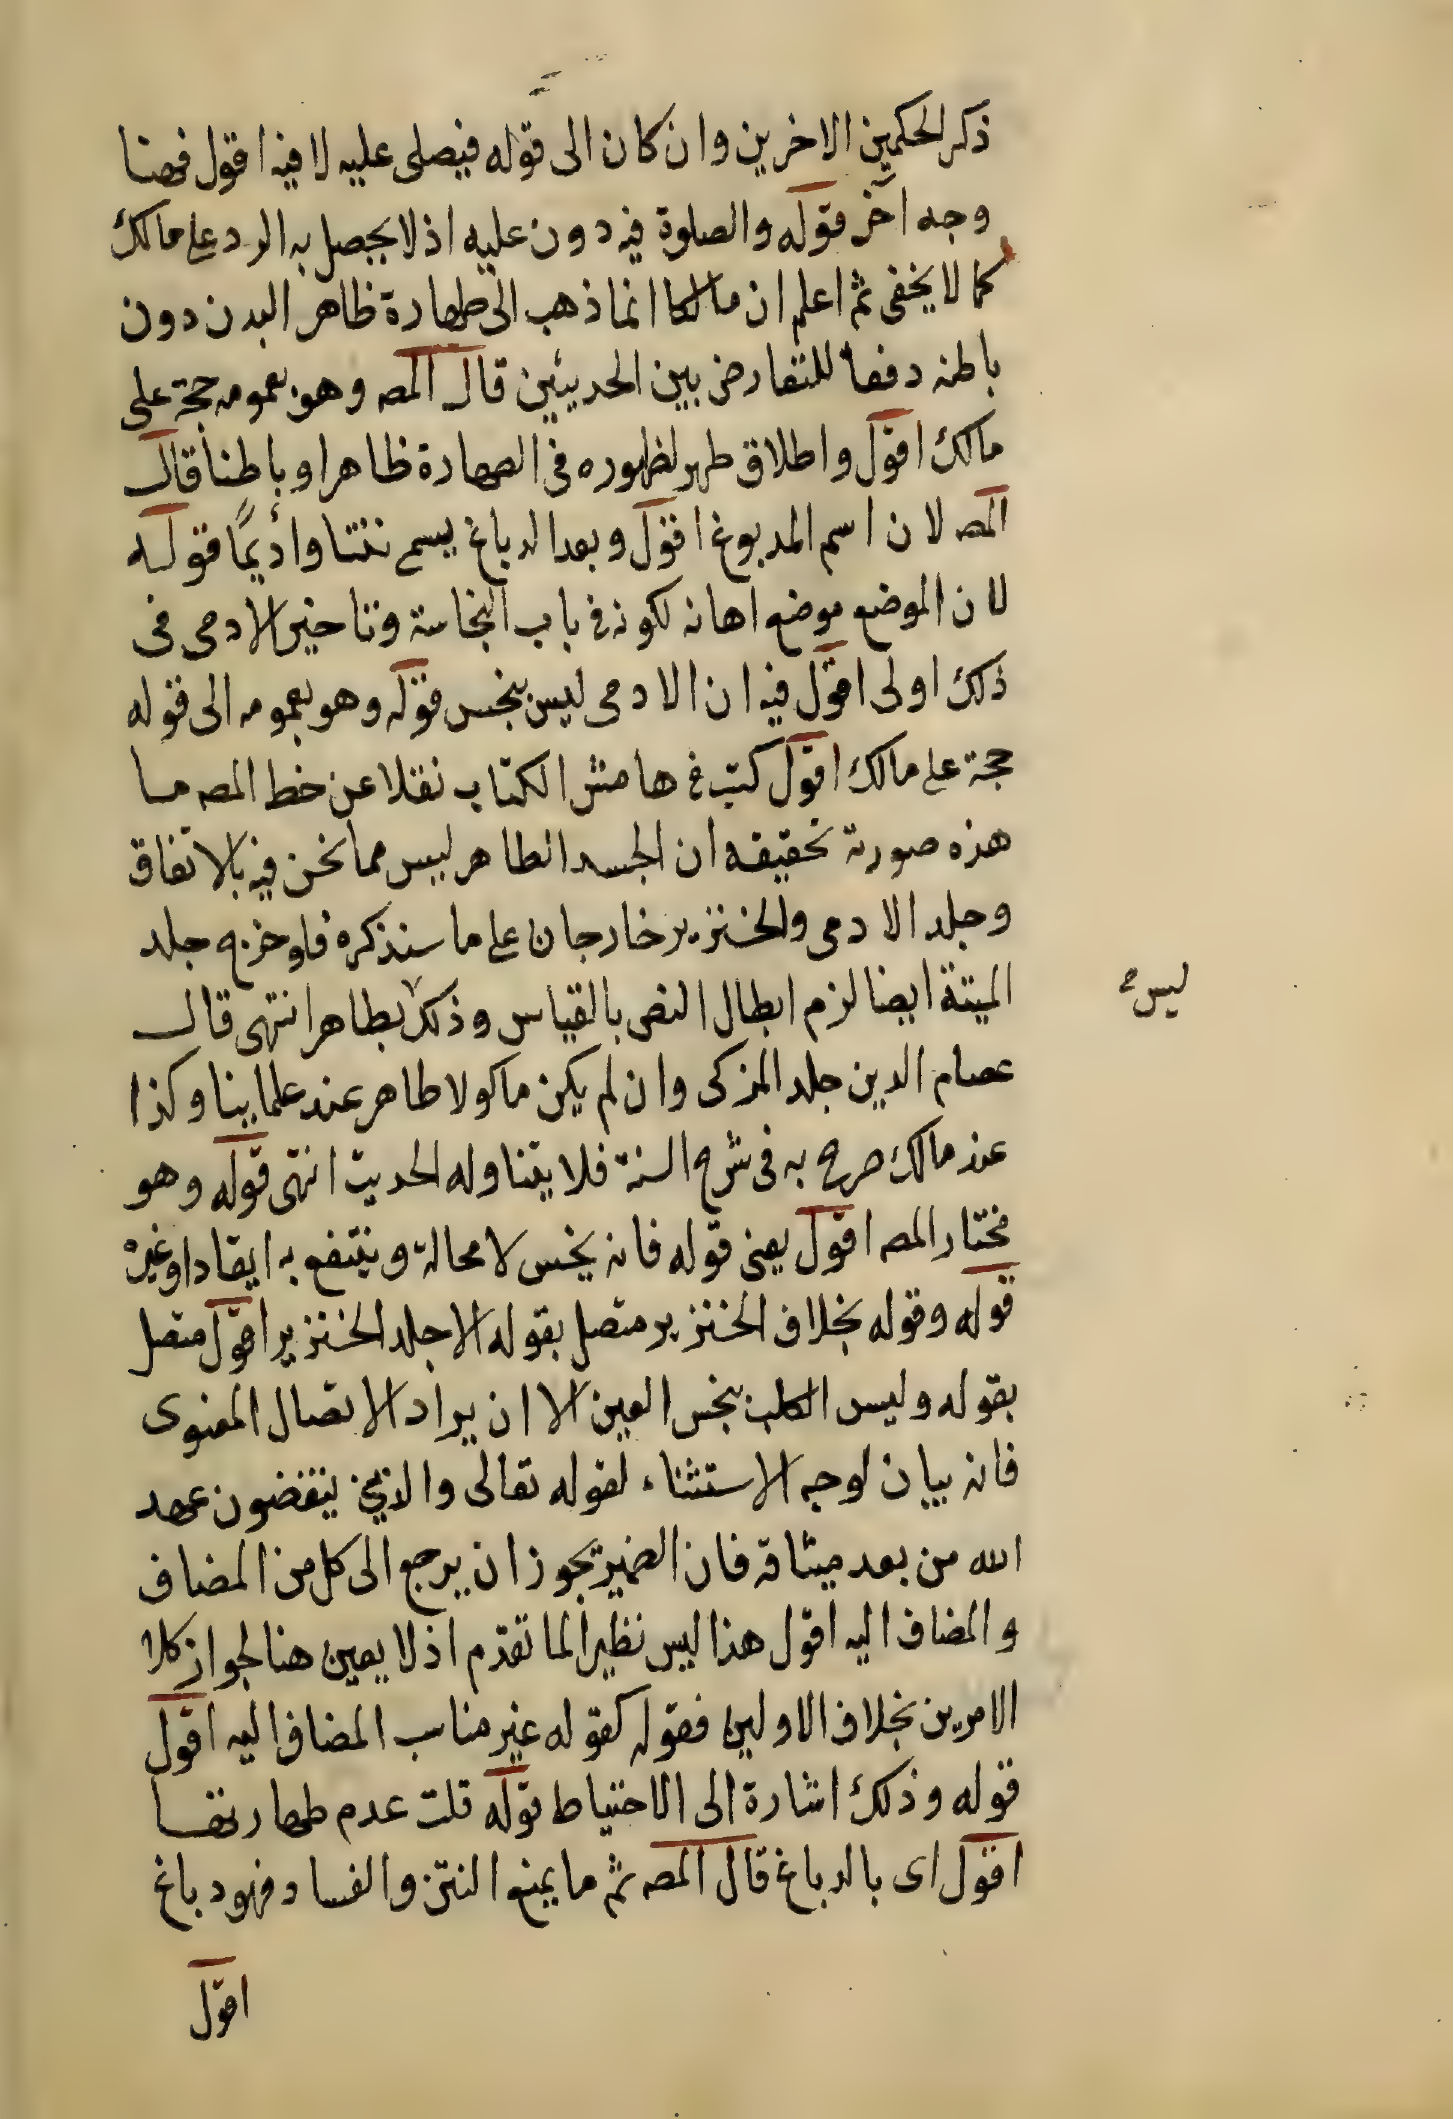 ذكر الحكمين الاخرين وان كان الى قوله فيصلى عليه لا فيه اقول فهنا
وجه آخر قوله والصلوة فيه دون عليه اذ لا يحصل به الرد على مالك
كما لا يخفى ثم اعلم ان مالكا انما ذهب الى طهارة ظاهر البدن دون
باطنه دفعا للتعارض بين الحديثين قال المصه وهو بعمومه حجة على
مالك اقول واطلاق طهر لظهوره فى الطهارة ظاهرا وباطنا قال
المصه لان اسم المدبوغ اقول وبعد الدباغ يسمى شنا واديمًا قوله
لان الموضع موضع اهانه لكونه فى باب النجاسة وتاخير الادمى فى
ذلك اولى اقول فيه ان الادمى ليس بنجس قوله وهو بعمومه الى قوله
حجة على مالك اقول كتب فى هامش الكتاب نقلا عن خط المصه ما
هذه صورته تحقيقه ان الجسد الطاهر ليس مما نحن فيه بالاتفاق
وجلد الادمى والخنزير خارجان على ما سنذكره فلو خرج جلد
الميتة ايضا لزم ابطال النص بالقياس وذلك بطاهر انتهى قال
ليس
عصام الدين جلد المزكى وان لم يكن ماكولا طاهر عند علماينا وكذا
عند مالك صرح به فى شرح السنة فلا يتناوله الحديث انتهى قوله وهو
مختار المصه اقول يعنى قوله فانه يخس لا محالة وينتفع به ايقادا وغيره
قوله وقوله بخلاف الخنزير متصل بقوله الا جلد الخنزير اقول متصل
بقوله وليس الكلب بنجس العين الا ان يراد الاتصال المعنوى
فانه بيان لوجه الاستثناء لقوله تعالى والذين ينقضون عهد
الله من بعد ميثاقه فان الضمير يجوز ان يرجع الى كل من المضاف
والمضاف اليه اقول هذا ليس نظيرا لما تقدم اذ لا يعين هنا لجواز كلا
الامرين بخلاف الاولين فقوله كقوله غير مناسب المضاف اليه اقول
قوله وذلك اشارة الى الاحتياط قوله قلت عدم طهارتها
اقول اى بالدباغ قال المصه ثم ما يمنع النتن والفساد فهو دباغ
اقول